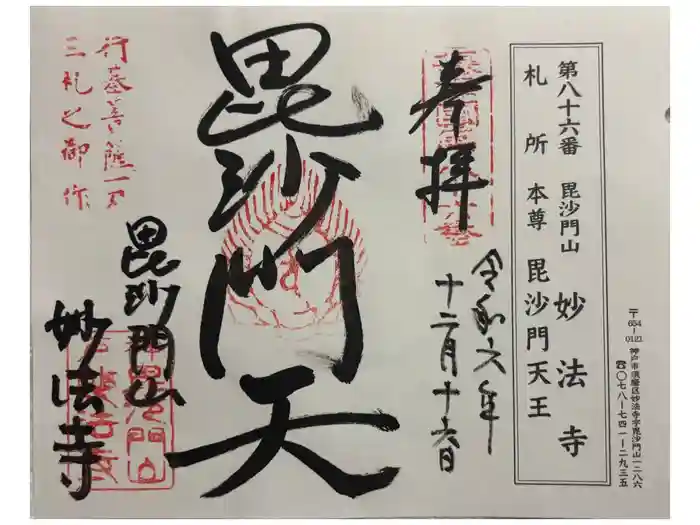 第八十六番 毘沙門山 妙法寺
札所本尊 毘沙門天王
〒654-0121 神戸市須磨区妙法寺字毘沙門山一二八六
☎〇七八-七四一-二九三五
奉拝
令和六年
十二月十六日
毘沙門天
毘沙門山
妙法寺
行基菩薩一刀
三札之御作